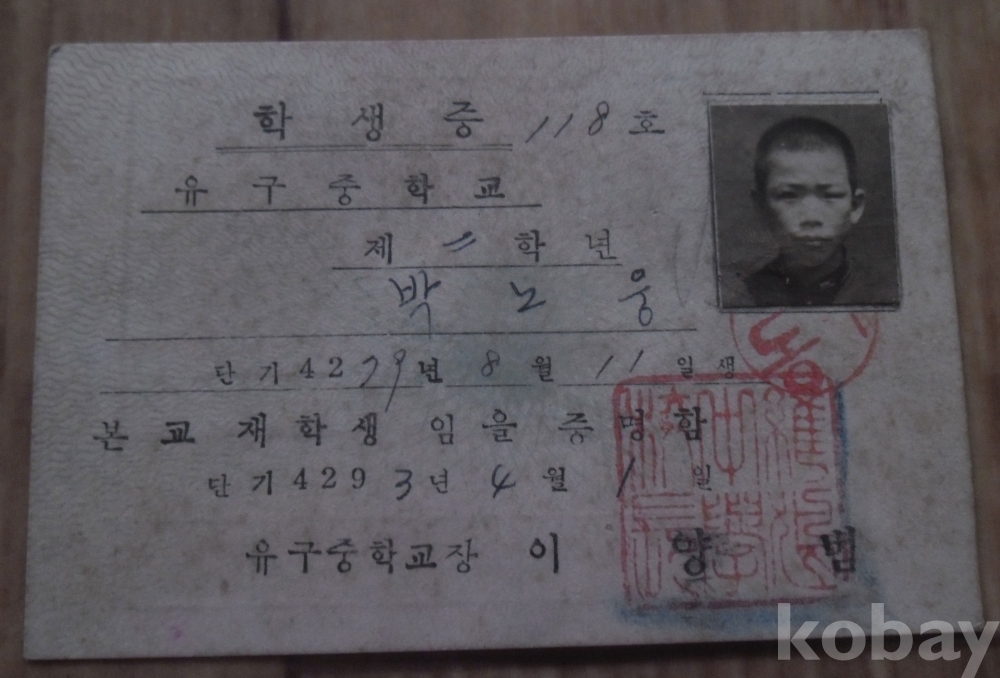 학생증 118 호
유구중학교
제 〃 학년
박노웅
단기 4279년 8월 11일생
본교 재학생임을 증명함
단기 4293년 4월 1일
유구중학교장 이양범
kobay